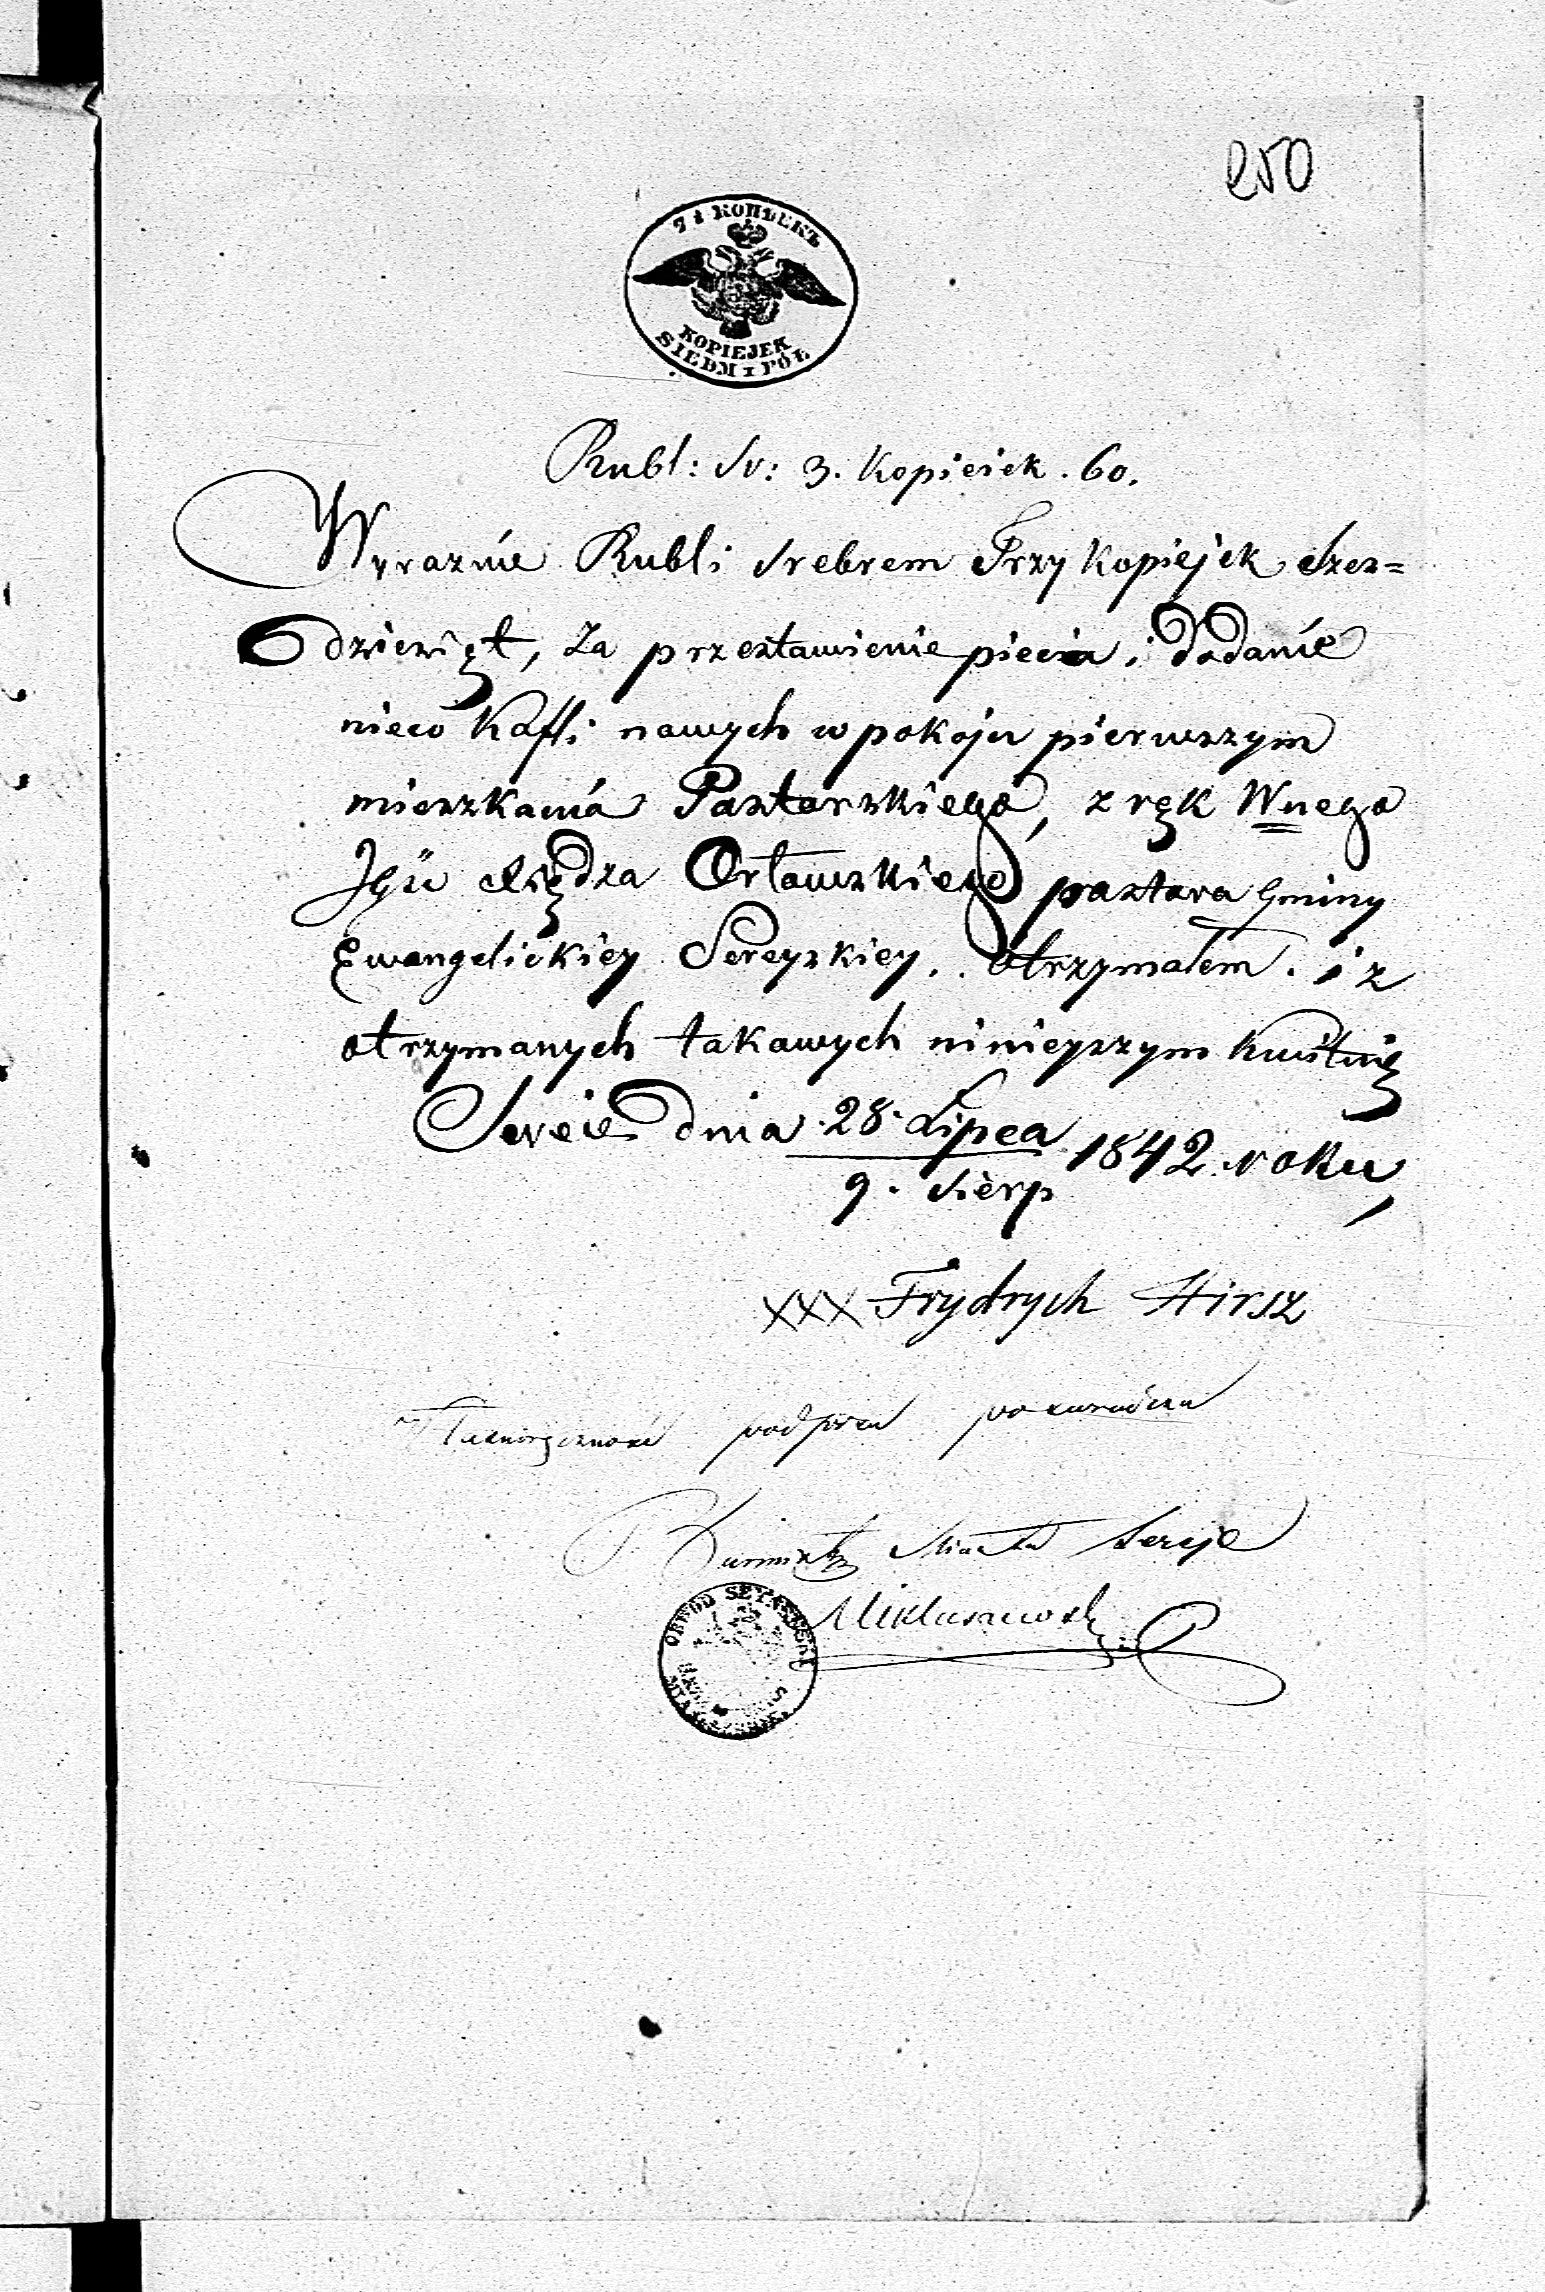 250
7 ½ КОПѢЕКЪ
KOPIEJEK
SIEDM i PÓŁ
Rubl: Sr: 3. Kopieiek. 60.
Wyraznie Rubli Srebrem Trzy Kopiejek Szes=
dziesiąt, za przestawienie pieca i dodanie
nieco Kafli nowych w pokoju pierwszym
mieszkania Pastorskiego, z rąk Wnego
Jgo Księdza Orłowskiego pastora Gminy
Ewangelickiey Sereyskiey. otrzymałem. i z
otrzymanych takowych ninieyszym kwituię
Sereie dnia 28. Lipca 1842. roku,
9. Sierp
XXX Frydrych Hirsz
Własnoręczność podpisu poswiadcza
Burmistrz Miasta Sereje
OBWÓD SEYNEŃSKI